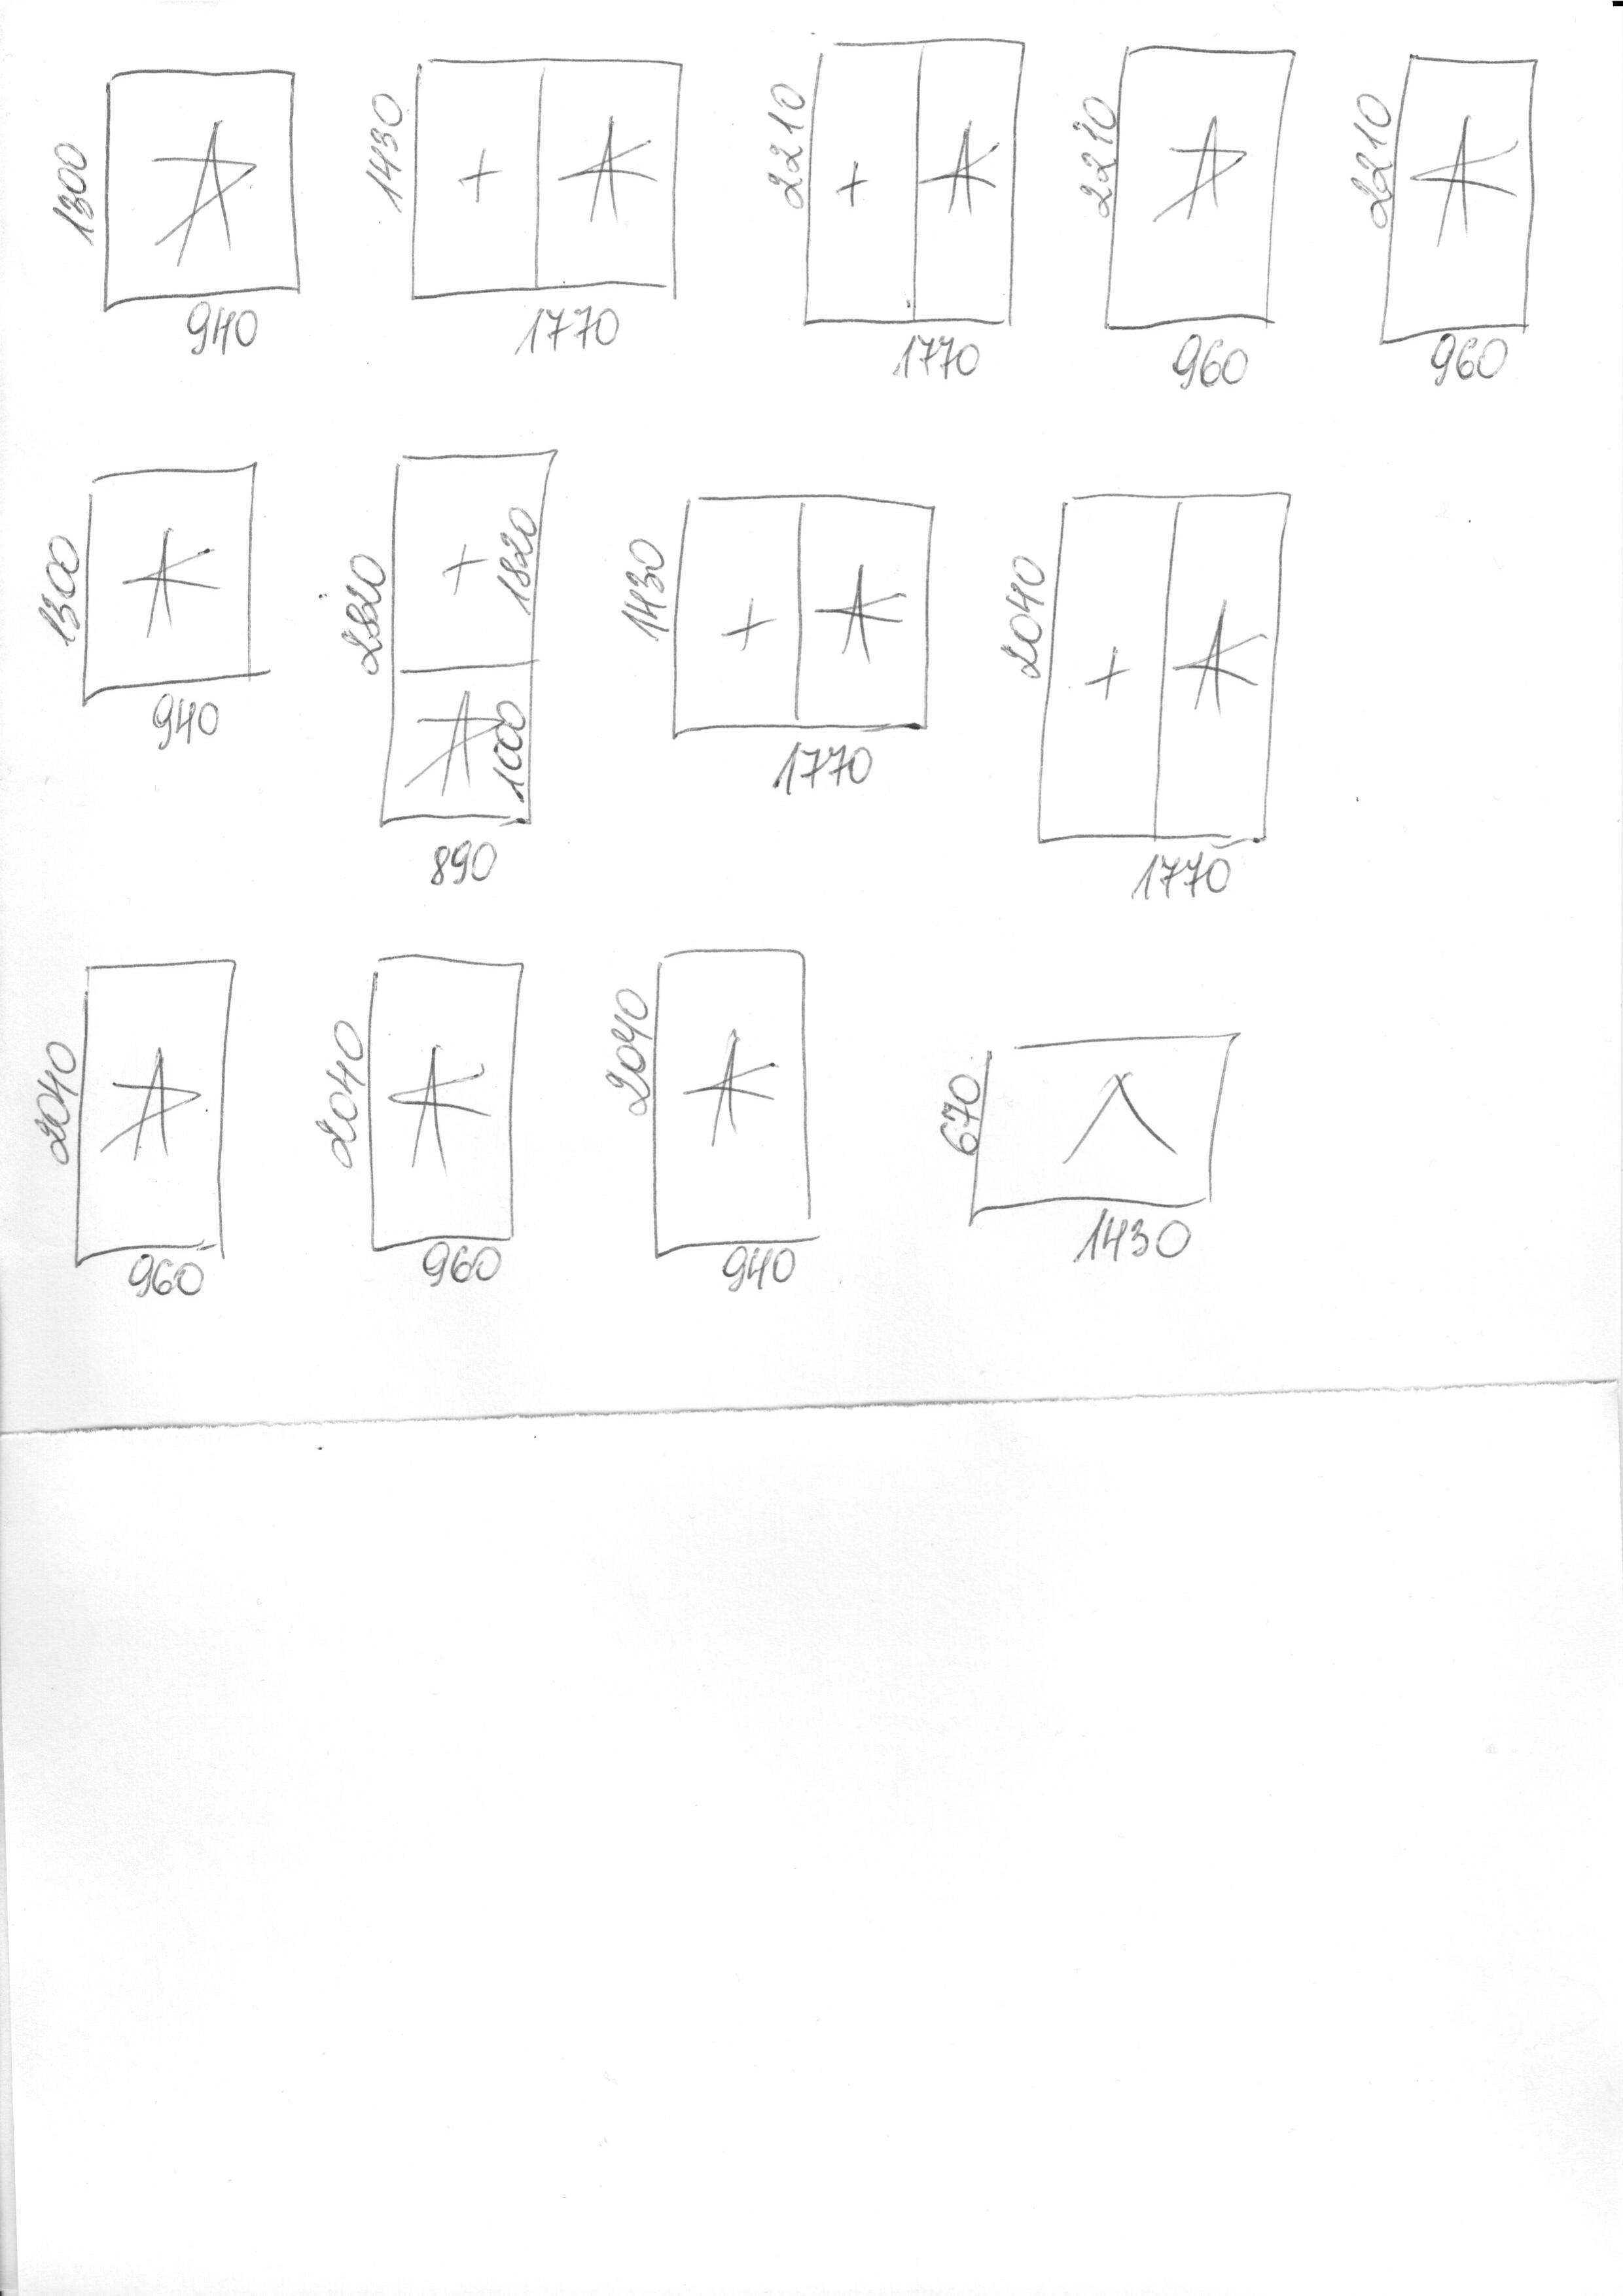 1300
940
1430
1770
2210
1770
2210
960
2210
960
1300
940
2820
1820
1000
890
1430
1770
2040
1770
2040
960
2040
960
2040
940
670
1430